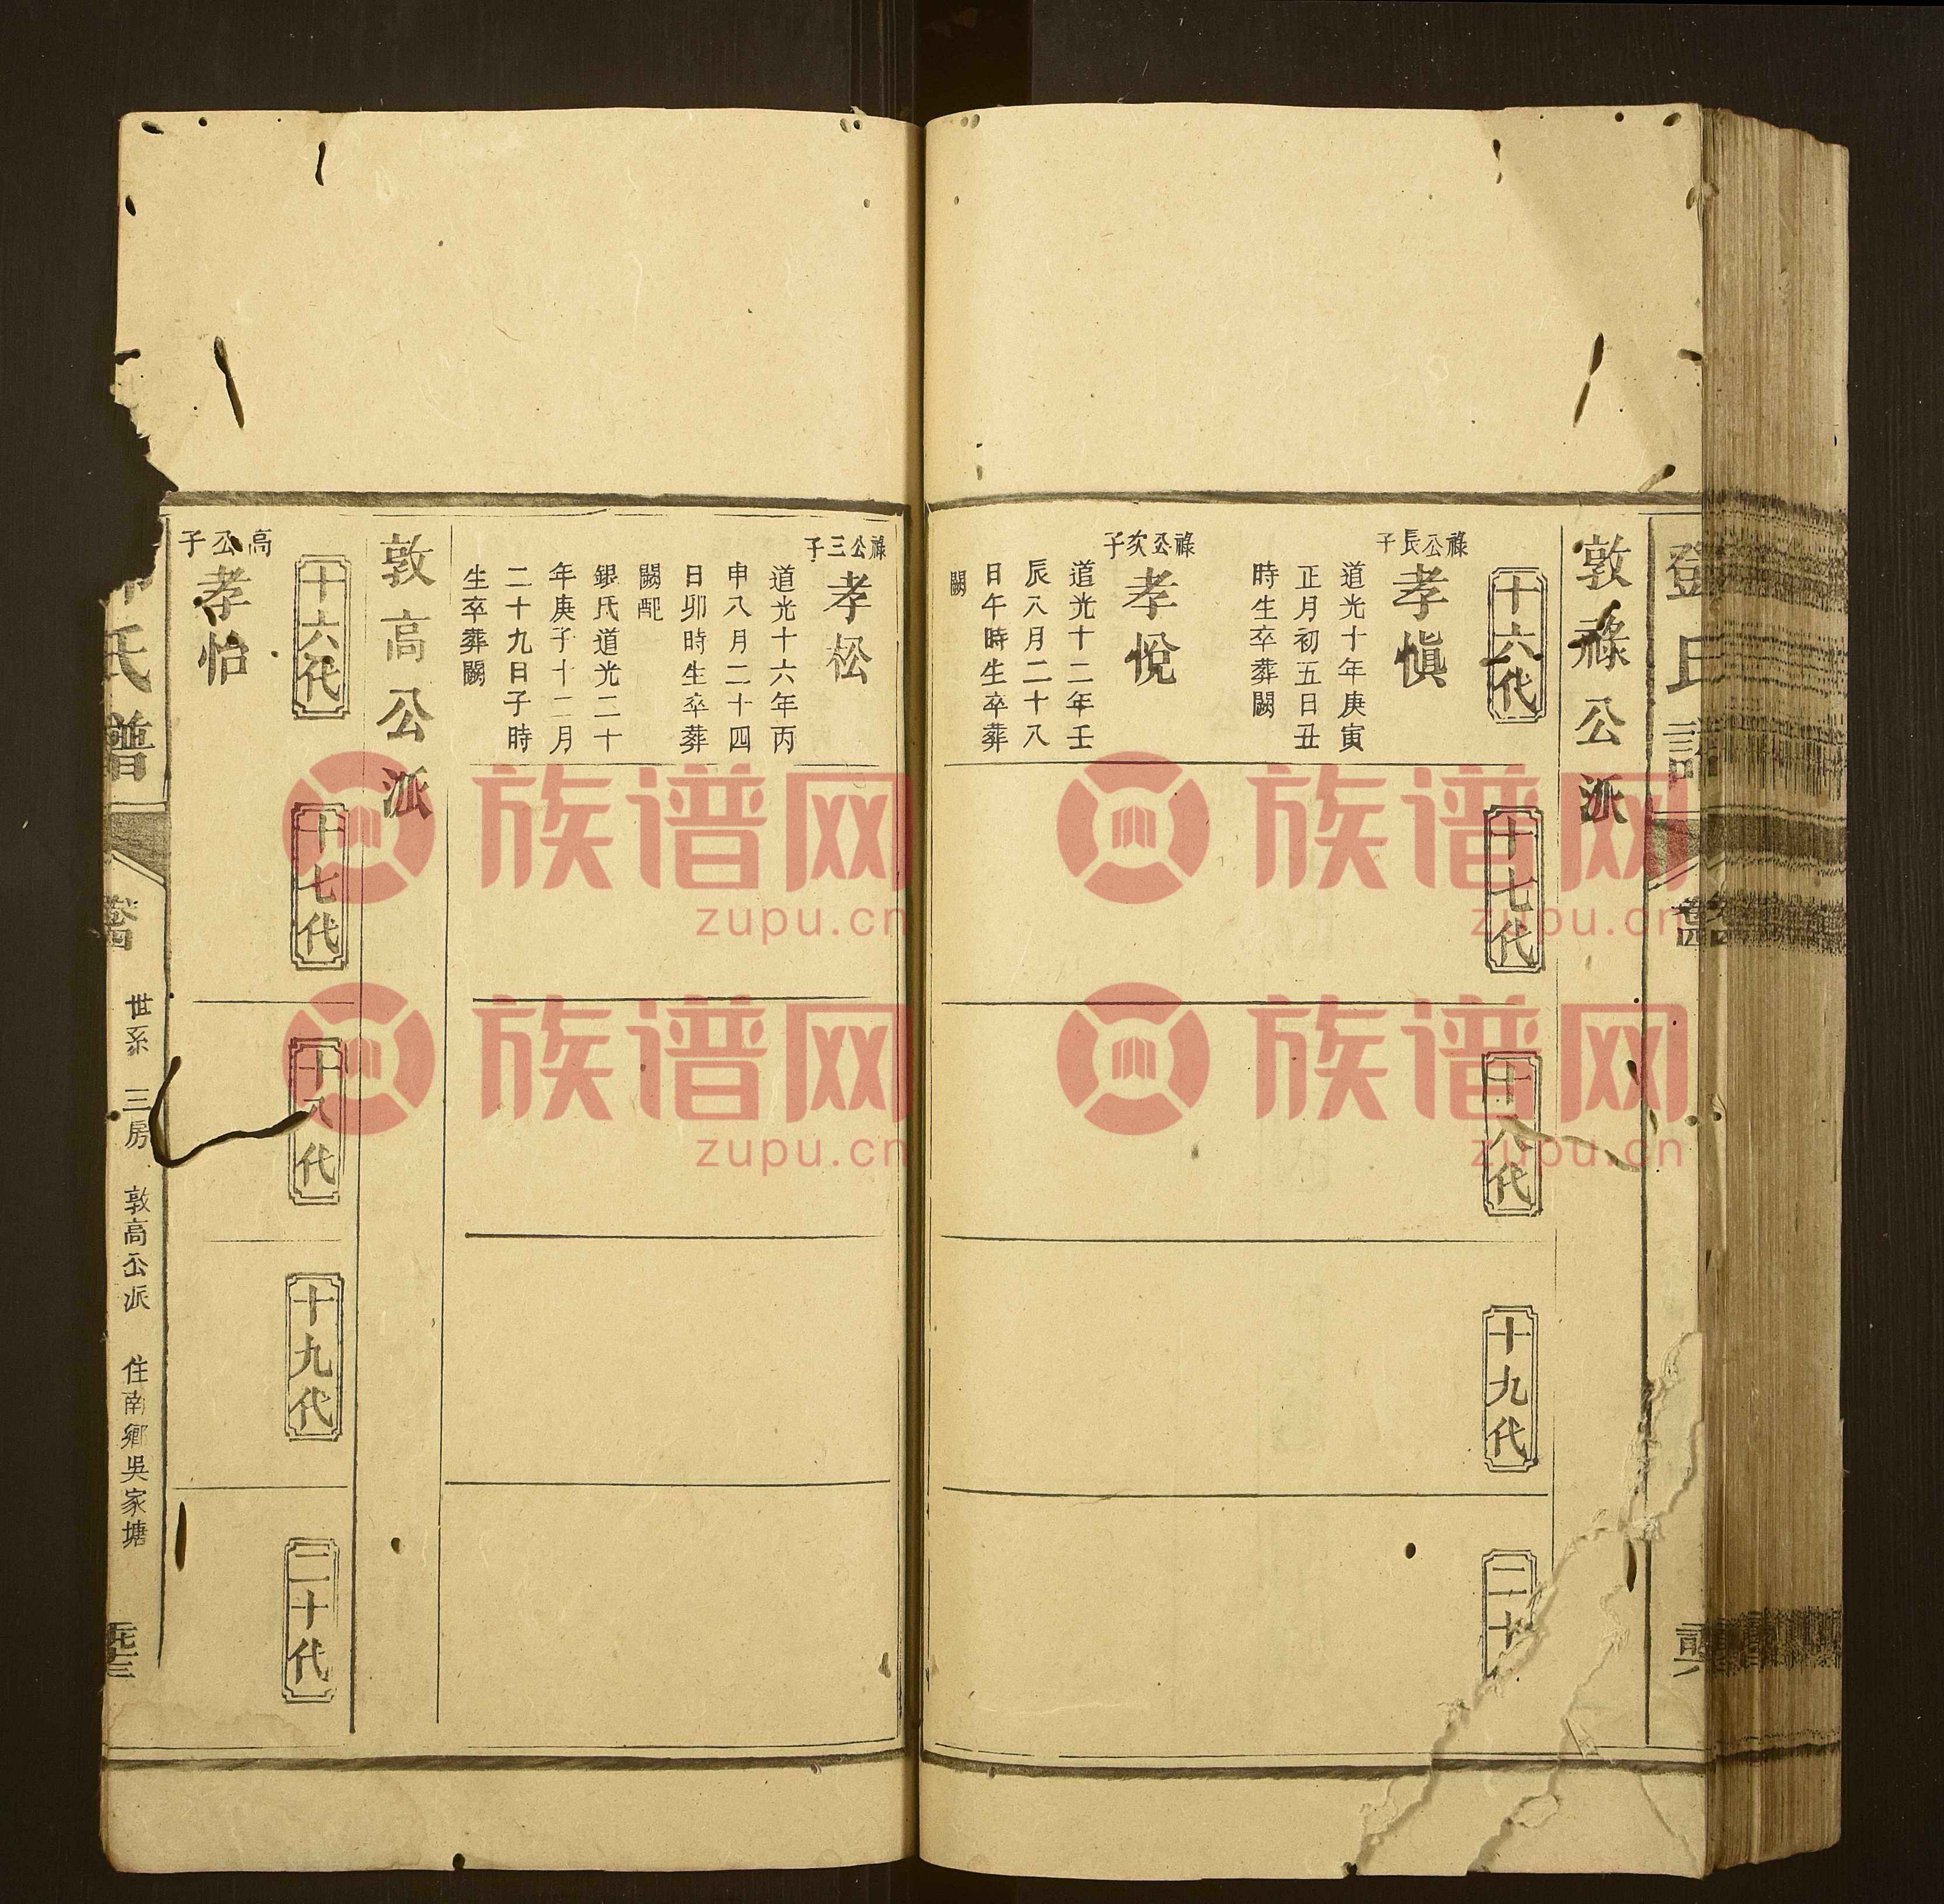 鄧氏譜
敦祿公派
十六代
十七代
十八代
十九代
二十
祿公長子
孝愼
道光十年庚寅
正月初五日丑
時生卒葬闕
祿公次子
孝悅
道光十二年壬
辰八月二十八
日午時生卒葬
闕
祿公三子
孝松
道光十六年丙
申八月二十四
日卯時生卒葬
闕配
銀氏道光二十
年庚子十二月
二十九日子時
生卒葬闕
敦高公派
十六代
十七代
十八代
十九代
二十代
高公子
孝怡
氏譜
世系 三房 敦高公派 住南鄉吳家塘
族谱网
zupu.cn
族谱网
zupu.cn
族谱网
zupu.cn
族谱网
zupu.cn